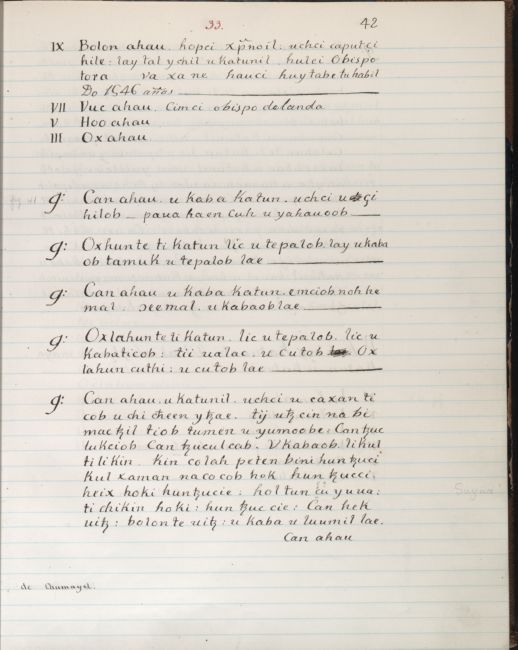 33. 42
IX Bolon ahau. hopci xp̃noil: uchci caputçi
hile: lay tal ychil u katunil. hulci Obispo
tora va xa ne hauci huytabe tu habil
Do 1546 años
VII Vuc ahau. Cimci obispo de landa
V Hoo ahau
III Ox ahau.
g: Can ahau. u Kaba Katun. uchci u çi
hilob _ pauahaen cuh u yahauoob
g: Oxhunte ti Katun lic u tepalob. lay u kaba
ob tamuk u tepalob lae
g: Can ahau u Kaba Katun. emciob noh he
mal. ɔeemal. u kabaob lae
g: Oxlahunte ti Katun. lic u tepalob. lic u
Kabaticob: tii ualac. u cutob Ox
lahun cuthi: u cutob lae
g: Can ahau. u Katunil. uchci u caxan ti
cob u chi cheen ytzae. tij utz cin na bi
mactzil tiob tumen u yumoobe: Can tzuc
lukciob Can tzucul cab. V Kabaob. likul
ti likin. Kin colah peten bini hun tzuci
Kul xaman nacocob hok hun tzucci
heix hoki hun tzucie: holtun çu yuua:
ti chikin hoki: hun tzuc cie: Can hek
uitz: bolonte uitz: u kaba u luumil lae.
Can ahau
de Chumayel.